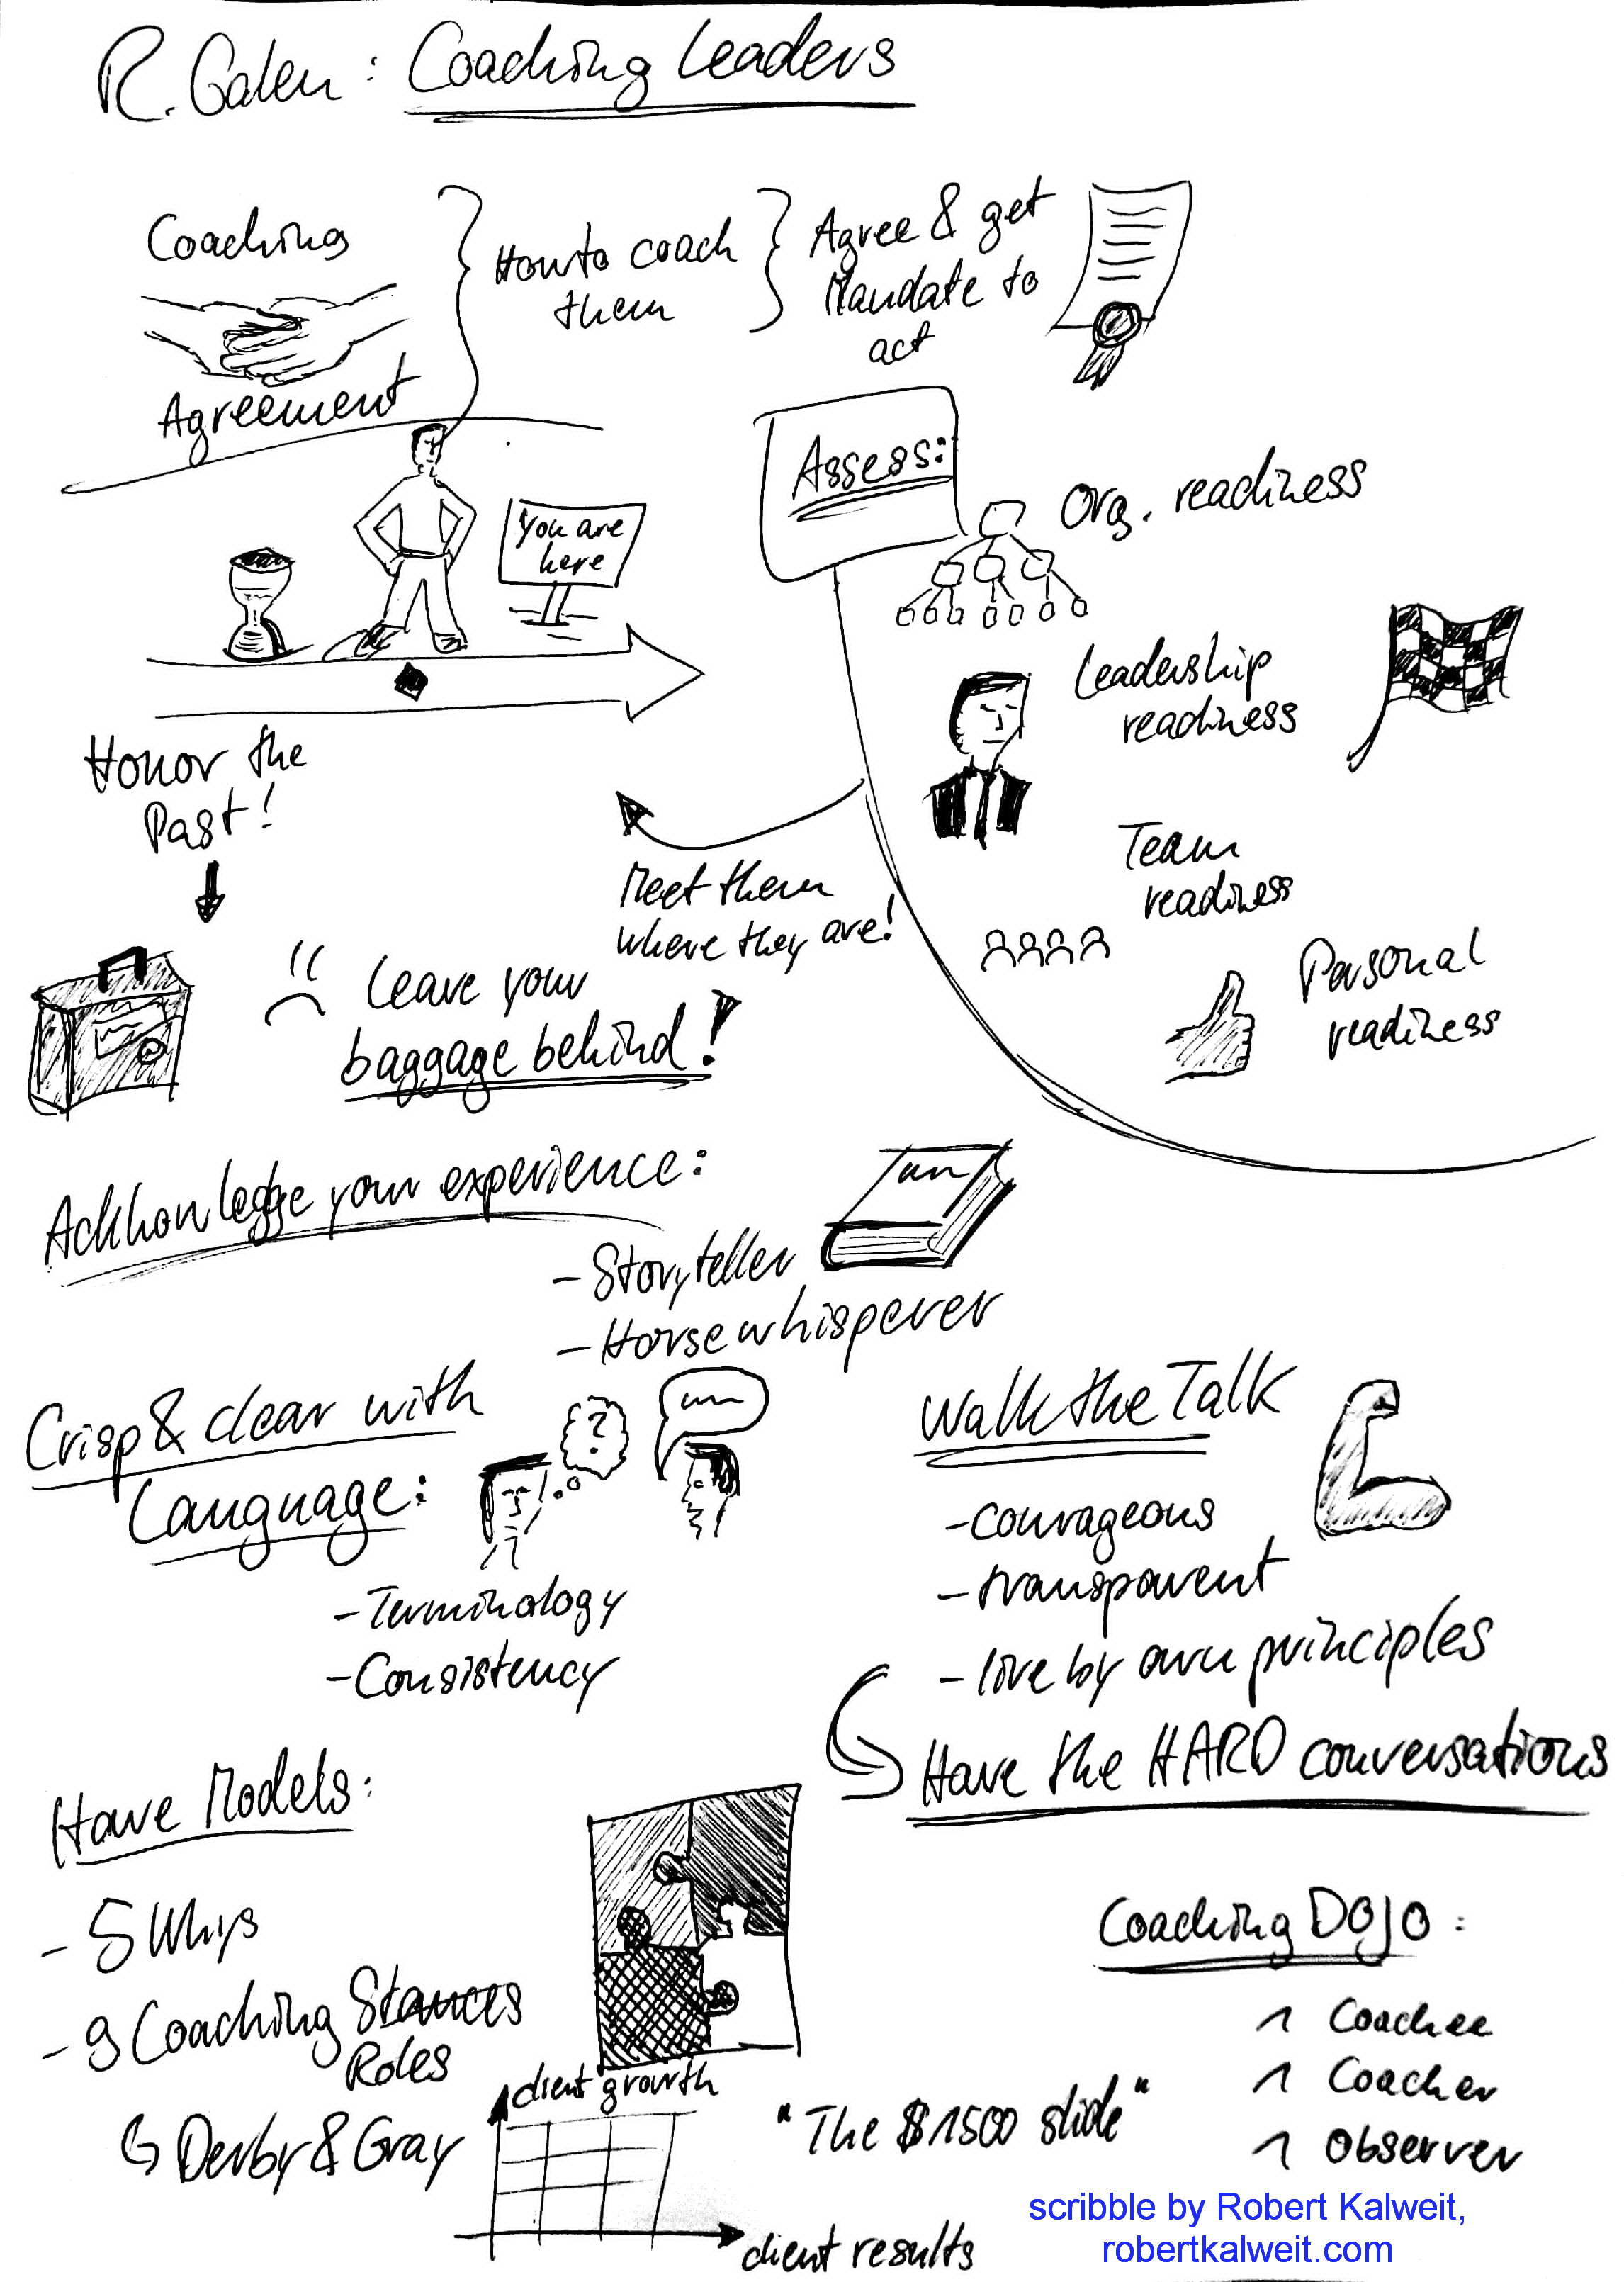 R. Galen: Coaching Leaders
Coaching
Agreement
How to coach
them
Agree & get
Mandate to
act
You are
here
Assess:
Org. readiness
Leadership
readiness
Team
readiness
Personal
readiness
Honor the
Past!
Meet them
where they are!
Leave your
baggage behind!
Acknowledge your experience:
- Storyteller
- Horse whisperer
Crisp & clear with
Language:
?
- Terminology
- Consistency
Walk the Talk
- courageous
- transparent
- live by own principles
Have the HARD conversations
Have Models:
- 5 Whys
- 9 Coaching Stances
Roles
Derby & Gray
client growth
client results
"The $1500 slide"
Coaching DOJO:
1 Coachee
1 Coacher
1 Observer
scribble by Robert Kalweit,
robertkalweit.com